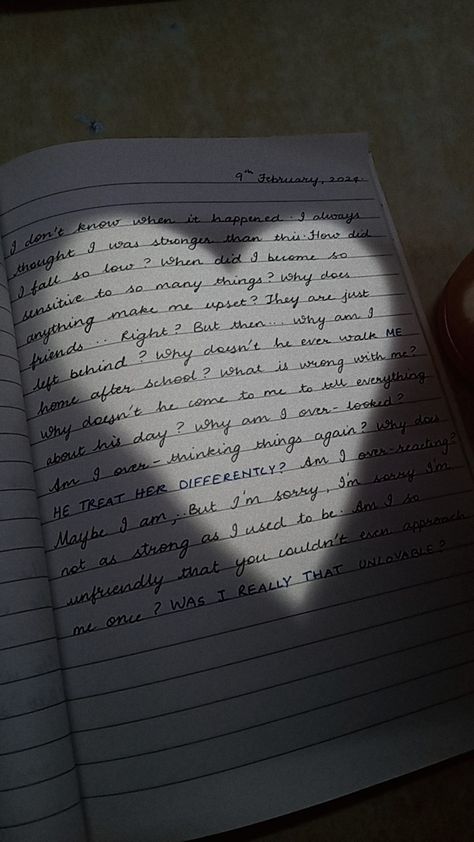 9th February, 2024.
I don't know when it happened. I always
thought I was stronger than this. How did
I fall so low? When did I become so
sensitive to so many things? Why does
anything make me upset? They are just
friends... Right? But then... Why am I
left behind? Why doesn't he ever walk ME
home after school? What is wrong with me?
Why doesn't he come to me to tell everything
about his day? Why am I over-looked?
Am I over-thinking things again? Why does
HE TREAT HER DIFFERENTLY? Am I over-reacting?
Maybe I am,.. But I'm sorry, I'm sorry I'm
not as strong as I used to be. Am I so
unfriendly that you couldn't even approach
me once? WAS I REALLY THAT UNLOVABLE?